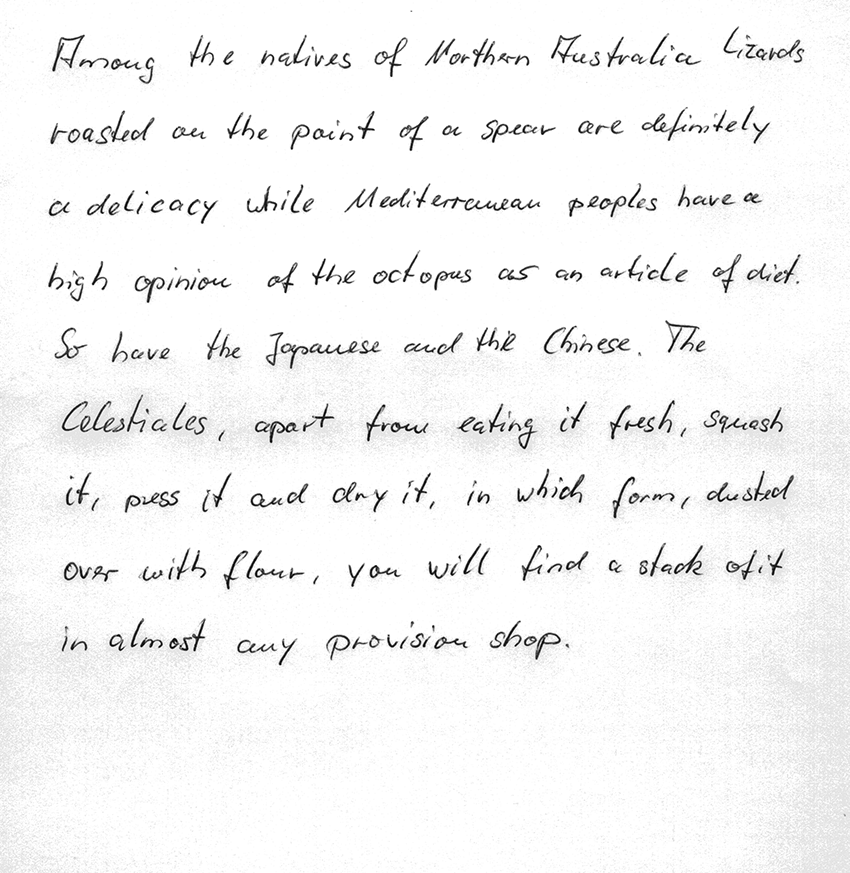 Among the natives of Northern Australia Lizards
roasted on the point of a spear are definitely
a delicacy while Mediterranean peoples have a
high opinion of the octopus as an article of diet.
So have the Japanese and the Chinese. The
Celestiales, apart from eating it fresh, squash
it, press it and dry it, in which form, dusted
over with flour, you will find a stack of it
in almost any provision shop.